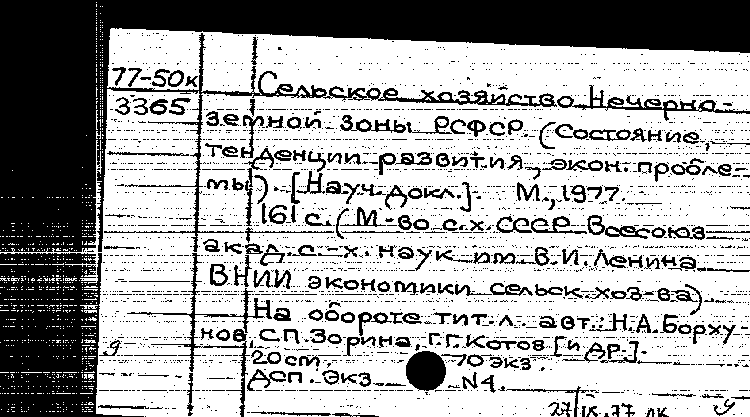 77-50к
3365
Сельское хозяйство Нечерно-
земной зоны РСФСР. (Состояние,
тенденции развития, экон. пробле-
мы). [Науч. докл.]. М., 1977.
161 с. (М-во с.х. СССР. Всесоюз
акад. с.-х. наук им. В.И. Ленина
ВНИИ экономики сельск. хоз-ва).
На обороте тит. л. авт.: Н.А. Борху-
нов, С.П. Зорина, Г.Г. Котов [и др.].
20 см. 70 экз.
ДСП. Экз N4.